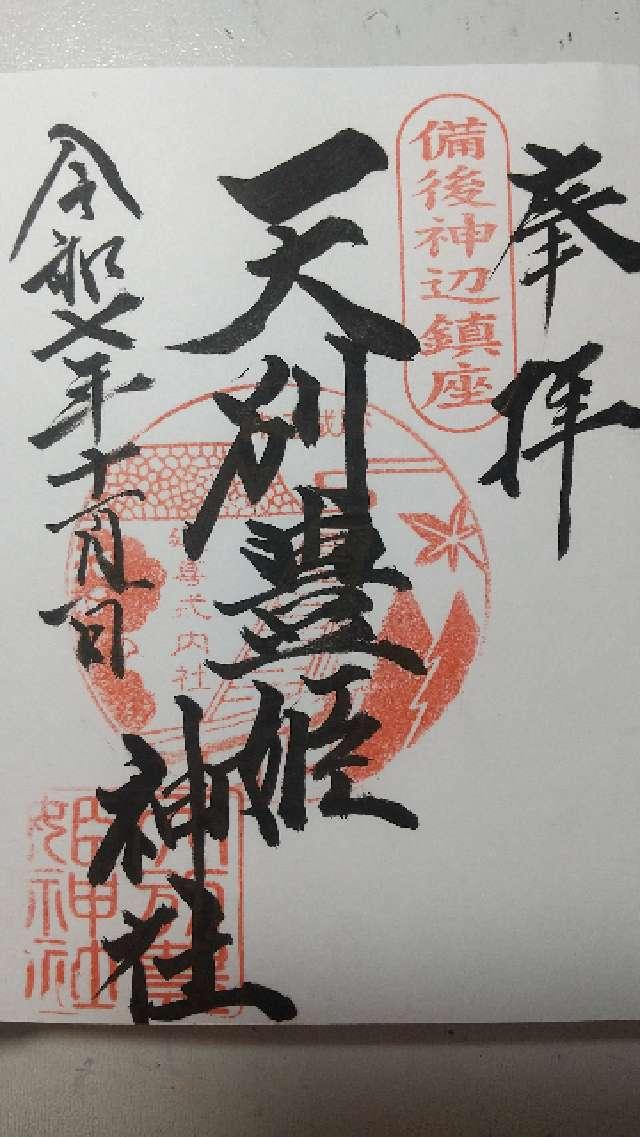 奉拝
備後神辺鎮座
天別豊姫
神社
延喜式内社
姫神社
令和七年十一月一日